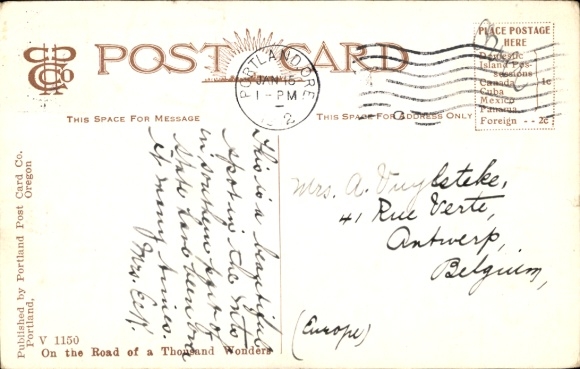 POST CARD
PORTLAND, ORE
JAN 15
1 - PM
PLACE POSTAGE
HERE
Domestic
Island Pos-
sessions
Canada 1c
Cuba
Mexico
Panama
Foreign - - 2c
THIS SPACE FOR MESSAGE
THIS SPACE FOR ADDRESS ONLY
This is a beautiful
spot in the Mts
in southern part of
State have been over
it many times.
Mrs.
Mrs. A. Vuylsteke,
41 Rue Verte,
Antwerp,
Belgium,
(Europe)
Published by Portland Post Card Co.
Portland, Oregon
V 1150
On the Road of a Thousand Wonders